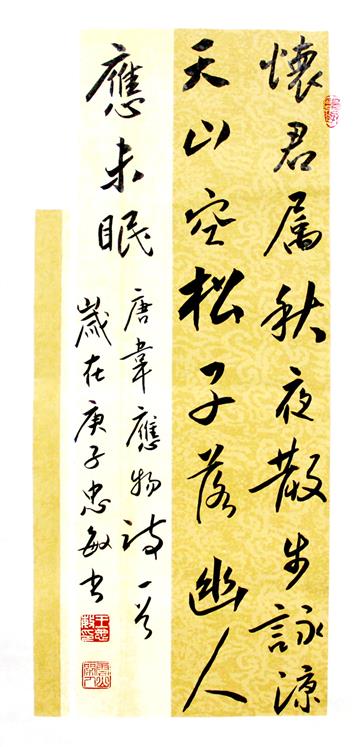 懷君屬秋夜散步詠涼
天山空松子落幽人
應未眠
唐韋應物詩一首
歲在庚子忠敏書